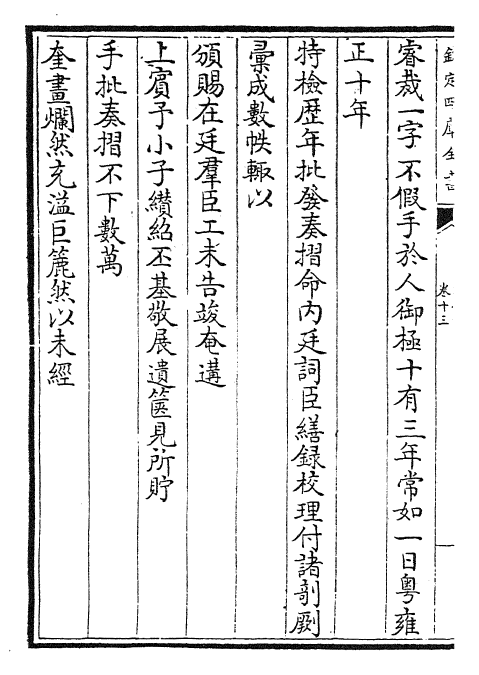 欽定四庫全書
卷十三
睿裁一字不假手於人御極十有三年常如一日粵雍
正十年
特檢歴年批發奏摺命内廷詞臣繕録校理付諸剞劂
彚成數帙輙以
頒賜在廷羣臣工未告竣奄遘
上賓予小子纘紹丕基敬展遺篋見所貯
手批奏摺不下數萬
奎畫爛然充溢巨簏然以未經